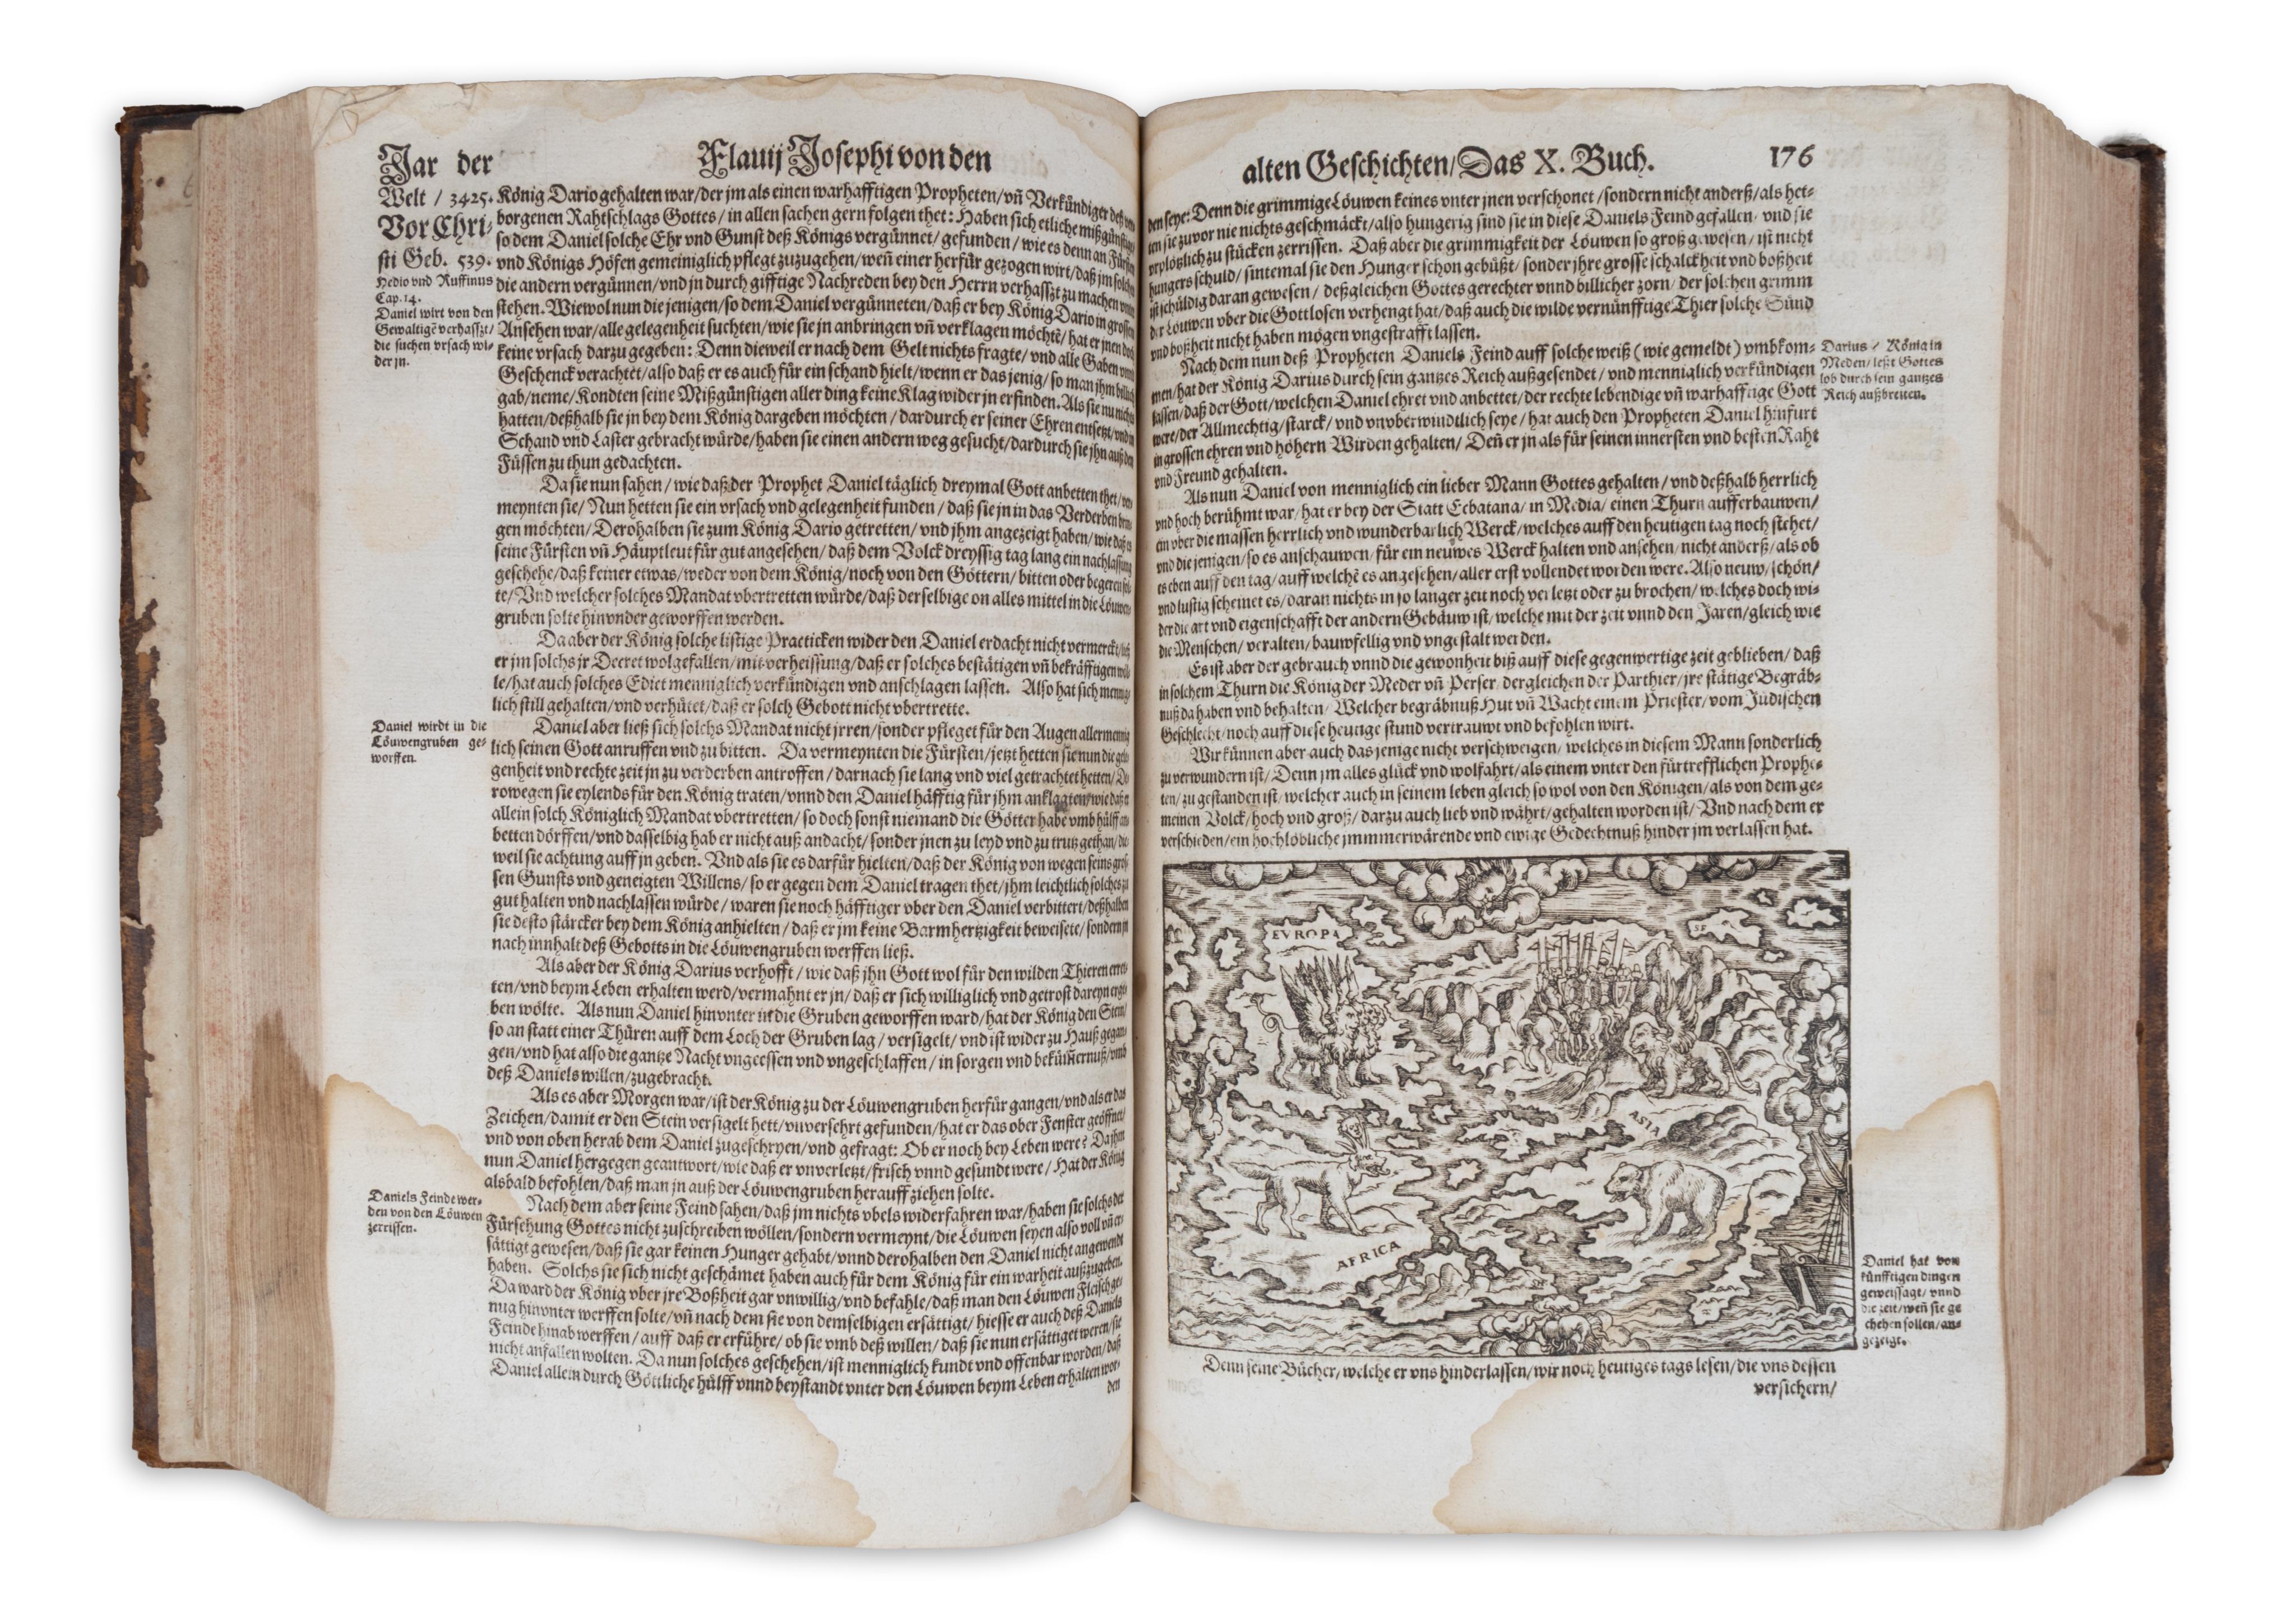 Jar der
Flavij Josephi von den
Welt / 3425.
Vor Chri-
sti Geb. 539.
Hedio vnd Ruffinus
Cap. 14.
Daniel wirt von den
Gewaltigē verhasszt/
die suchen vrsach wi-
der jn.
König Dario gehalten war/der jm als einen warhafftigen Propheten/vñ Verkündiger deß
borgenen Rahtschlags Gottes/in allen sachen gern folgen thet: Haben sich etliche mißgünstige/
so dem Daniel solche Ehr vnd Gunst deß Königs vergünnet/gefunden/wie es denn an Fürsten
vnd Königs Höfen gemeiniglich pflegt zuzugehen/weñ einer herfür gezogen wirt/daß jm solchs
die andern vergünnen/vnd jn durch gifftige Nachreden bey den Herrn verhasszt zu machen
stehen. Wiewol nun die jenigen/so dem Daniel vergünneten/daß er bey König Dario in grossem
Ansehen war/alle gelegenheit suchten/wie sie jn anbringen vñ verklagen möchtē/hat er jnen doch
keine vrsach darzu gegeben: Denn dieweil er nach dem Gelt nichts fragte/vnd alle Gaben vnnd
Geschenck verachtet/also daß er es auch für ein schand hielt/wenn er das jenig/so man jhm billich
gab/neme/Kondten seine Mißgünstigen aller ding keine Klag wider jn erfinden. Als sie nu nichts
hatten/deßhalb sie jn bey dem König dargeben möchten/dardurch er seiner Ehren entsetzt/vnd in
Schand vnd Laster gebracht würde/haben sie einen andern weg gesucht/dardurch sie jhn auß den
Füssen zu thun gedachten.
Da sie nun sahen/wie daß der Prophet Daniel täglich dreymal Gott anbetten thet/
meynten sie/Nun hetten sie ein vrsach vnd gelegenheit funden/daß sie jn in das Verderben brin-
gen möchten/Derohalben sie zum König Dario getretten/vnd jhm angezeigt haben/wie daß es
seine Fürsten vñ Häuptleut für gut angesehen/daß dem Volck dreyssig tag lang ein nachlassung
geschehe/daß keiner etwas/weder von dem König/noch von den Göttern/bitten oder begeren sol-
te/Vnd welcher solches Mandat vbertretten würde/daß derselbige on alles mittel in die Löuwen-
gruben solte hinvnder geworffen werden.
Da aber der König solche listige Practicken wider den Daniel erdacht nicht vermerckt/ließ
er jm solchs jr Decret wolgefallen/mit verheissung/daß er solches bestätigen vñ bekräfftigen wöl-
le/hat auch solches Edict menniglich verkündigen vnd anschlagen lassen. Also hat sich mennig-
lich still gehalten/vnd verhütet/daß er solch Gebott nicht vbertrette.
Daniel wirdt in die
Löuwengruben ge-
worffen.
Daniel aber ließ sich solchs Mandat nicht jrren/sonder pfleget für den Augen allermennig-
lich seinen Gott anruffen vnd zu bitten. Da vermeynten die Fürsten/jetzt hetten sie nun die gele-
genheit vnd rechte zeit jn zu verderben antroffen/darnach sie lang vnd viel getrachtet hetten/De-
rowegen sie eylends für den König traten/vnnd den Daniel häfftig für jhm anklagten/wie daß er
allein solch Königlich Mandat vbertretten/so doch sonst niemand die Götter habe vmb hülff an-
betten dörffen/vnd dasselbig hab er nicht auß andacht/sonder jnen zu leyd vnd zu trutz gethan/die-
weil sie achtung auff jn geben. Vnd als sie es darfür hielten/daß der König von wegen seins gros-
sen Gunsts vnd geneigten Willens/so er gegen dem Daniel tragen thet/jhm leichtlich solches zu
gut halten vnd nachlassen würde/waren sie noch häfftiger vber den Daniel verbittert/deßhalben
sie desto stärcker bey dem König anhielten/daß er jm keine Barmhertzigkeit beweisete/sondern jn
nach innhalt deß Gebotts in die Löuwengruben werffen ließ.
Als aber der König Darius verhofft/wie daß jhn Gott wol für den wilden Thieren erret-
ten/vnd beym Leben erhalten werd/vermahnt er jn/daß er sich williglich vnd getrost dareyn erge-
ben wölte. Als nun Daniel hinvnter in die Gruben geworffen ward/hat der König den Stein/
so an statt einer Thüren auff dem Loch der Gruben lag/versigelt/vnd ist wider zu Hauß gegan-
gen/vnd hat also die gantze Nacht vngeessen vnd vngeschlaffen/in sorgen vnd bekümernuß/vmb
deß Daniels willen/zugebracht.
Als es aber Morgen war/ist der König zu der Löuwengruben herfür gangen/vnd als er das
Zeichen/damit er den Stein versigelt hett/vnversehrt gefunden/hat er das ober Fenster geöffnet/
vnd von oben herab dem Daniel zugeschryen/vnd gefragt: Ob er noch bey Leben were? Da jhm
nun Daniel hergegen geantwort/wie daß er vnverletzt/frisch vnnd gesundt were/Hat der König
alsbald befohlen/daß man jn auß der Löuwengruben herauff ziehen solte.
Daniels Feinde wer-
den von den Löuwen
zerrissen.
Nach dem aber seine Feind sahen/daß jm nichts vbels widerfahren war/haben sie solchs der
Fürsehung Gottes nicht zuschreiben wöllen/sondern vermeynt/die Löuwen seyen also voll vñ er-
sättigt gewesen/daß sie gar keinen Hunger gehabt/vnnd derohalben den Daniel nicht angewendt
haben. Solchs sie sich nicht geschämet haben auch für dem König für ein warheit außzugeben.
Da ward der König vber jre Boßheit gar vnwillig/vnd befahle/daß man den Löuwen Fleisch ge-
nug hinvnter werffen solte/vñ nach dem sie von demselbigen ersättigt/hiesse er auch deß Daniels
Feinde hinab werffen/auff daß er erführe/ob sie vmb deß willen/daß sie nun ersättiget weren/sie
nicht anfallen wolten. Da nun solches geschehen/ist menniglich kundt vnd offenbar worden/daß
Daniel allein durch Göttliche hülff vnnd beystandt vnter den Löuwen beym Leben erhalten wor-
den
alten Geschichten/Das X. Buch.
176
den seye: Denn die grimmige Löuwen keines vnter jnen verschonet/sondern nicht anderß/als het-
ten sie zuvor nie nichts geschmäckt/also hungerig sind sie in diese Daniels Feind gefallen/vnd sie
vrplötzlich zu stücken zerrissen. Daß aber die grimmigkeit der Löuwen so groß gewesen/ist nicht
hungers schuld/sintemal sie den Hunger schon gebüßt/sonder jhre grosse schalckheit vnd boßheit
ist schüldig daran gewesen/deßgleichen Gottes gerechter vnnd billicher zorn/der solchen grimm
der Löuwen vber die Gottlosen verhengt hat/daß auch die wilde vernünfftige Thier solche Sünd
vnd boßheit nicht haben mögen vngestrafft lassen.
Nach dem nun deß Propheten Daniels Feind auff solche weiß (wie gemeldt) vmbkom-
men/hat der König Darius durch sein gantzes Reich außgesendet/vnd menniglich verkündigen
lassen/daß der Gott/welchen Daniel ehret vnd anbettet/der rechte lebendige vñ warhafftige Gott
were/der Allmechtig/starck/vnd vnvberwindtlich seye/hat auch den Propheten Daniel hinfurt
in grossen ehren vnd höhern Wirden gehalten/Deñ er jn als für seinen innersten vnd besten Raht
vnd Freund gehalten.
Darius / König in
Meden/leßt Gottes
lob durch sein gantzes
Reich außbreiten.
Als nun Daniel von menniglich ein lieber Mann Gottes gehalten/vnd deßhalb herrlich
vnd hoch berühmt war/hat er bey der Statt Ecbatana/in Media/einen Thurn aufferbauwen/
ein vber die massen herrlich vnd wunderbarlich Werck/welches auff den heutigen tag noch stehet/
vnd die jenigen/so es anschauwen/für ein neuwes Werck halten vnd ansehen/nicht anderß/als ob
es eben auff den tag/auff welchē es angesehen/aller erst vollendet worden were. Also neuw/schön/
vnd lustig scheinet es/daran nichts in so langer zeit noch verletzt oder zu brochen/welches doch wi-
der die art vnd eigenschafft der andern Gebäuw ist/welche mit der zeit vnnd den Jaren/gleich wie
die Menschen/veralten/bauwfellig vnd vngestalt werden.
Es ist aber der gebrauch vnnd die gewonheit biß auff diese gegenwertige zeit geblieben/daß
in solchem Thurn die König der Meder vñ Perser/dergleichen der Parthier/jre stätige Begräb-
nuß da haben vnd behalten/Welcher begräbnuß Hut vñ Wacht einem Priester/vom Jüdischen
Geschlecht/noch auff diese heutige stund vertrauwt vnd befohlen wirt.
Wir künnen aber auch das jenige nicht verschweigen/welches in diesem Mann sonderlich
zu verwundern ist/Denn jm alles glück vnd wolfahrt/als einem vnter den fürtrefflichen Prophe-
ten/zu gestanden ist/welcher auch in seinem leben gleich so wol von den Königen/als von dem ge-
meinen Volck/hoch vnd groß/darzu auch lieb vnd währt/gehalten worden ist/Vnd nach dem er
verschieden/ein hochlöbliche jmmmerwärende vnd ewige Gedechtnuß hinder jm verlassen hat.
EVROPA
ASIA
AFRICA
Daniel hat von
künfftigen dingen
geweissagt/vnnd
die zeit/weñ sie ge
chehen sollen/an-
gezeigt.
Denn seine Bücher/welche er vns hinderlassen/wir noch heutiges tags lesen/die vns dessen
versichern/